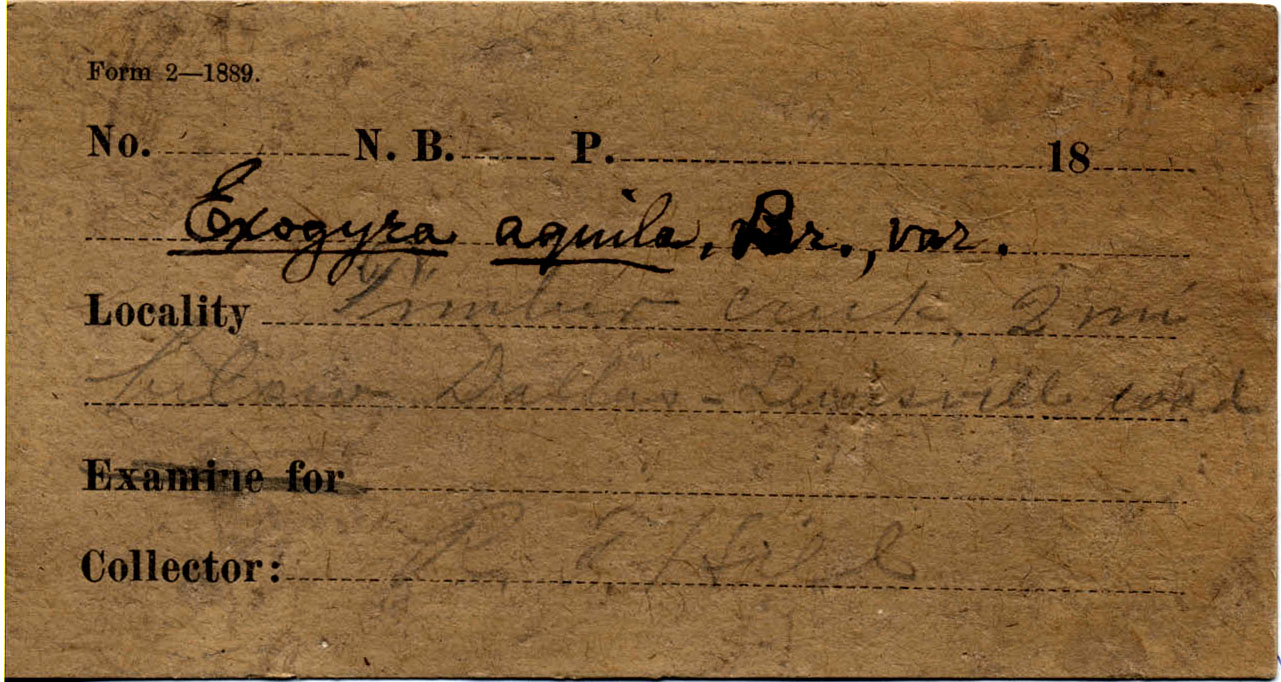 Form 2—1889.
No. N. B. P. 18
Exogyra aquila, Br., var.
Locality Timber creek, 2 mi
below Dallas-Lewisville road
Examine for
Collector: R. T. Hill